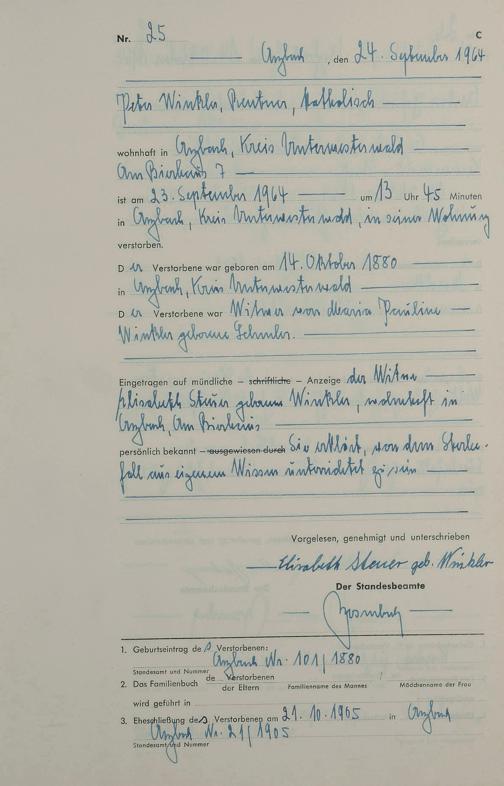 Nr. 25 C
Arzbach, den 24. September 1964
Peter Winkler, Rentner, katholisch
wohnhaft in Arzbach, Kreis Unterwesterwald
Am Bierhaus 7
ist am 23. September 1964 um 13 Uhr 45 Minuten
in Arzbach, Kreis Unterwesterwald, in seiner Wohnung
verstorben.
D er Verstorbene war geboren am 14. Oktober 1880
in Arzbach, Kreis Unterwesterwald
D er Verstorbene war Witwer von Maria Pauline
Winkler geborene
Eingetragen auf mündliche – schriftliche – Anzeige der Witwe
Elisabeth Steuer geborene Winkler, wohnhaft in
Arzbach, Am Bierhaus
persönlich bekannt – ausgewiesen durch Sie erklärt, von dem Sterbe-
fall aus eigenem Wissen unterrichtet zu sein
Vorgelesen, genehmigt und unterschrieben
Elisabeth Steuer geb. Winkler
Der Standesbeamte
1. Geburtseintrag des Verstorbenen:
Arzbach Nr. 101/1880
Standesamt und Nummer
2. Das Familienbuch der Verstorbenen
der Eltern Familienname des Mannes Mädchenname der Frau
wird geführt in
3. Eheschließung des Verstorbenen am 21.10.1905 in Arzbach
Arzbach Nr. 21/1905
Standesamt und Nummer